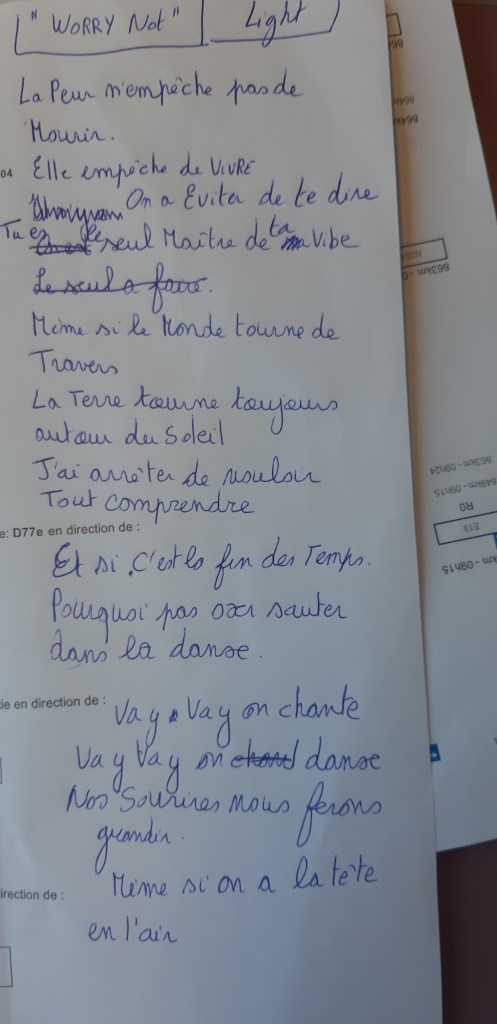 "WORRY Not" Light
La Peur n'empêche pas de
Mourir.
04
Elle empêche de VIVRE
On a Eviter de te dire
Tu es le seul Maître de ta Vibe
Le seul a faire.
Même si le Monde tourne de
Travers
La Terre tourne toujours
autour du Soleil
J'ai arrêter de vouloir
Tout comprendre
e: D77e en direction de :
Et si C'est la fin des Temps.
Pourquoi pas oser sauter
dans la danse.
ie en direction de :
Vay Vay on chante
Vay Vay on danse
Nos Sourires nous ferons
grandir.
Même si on a la tête
irection de :
en l'air
863km - 0
863km - 09h24
849km - 09h15
R0
E19
km - 09h15